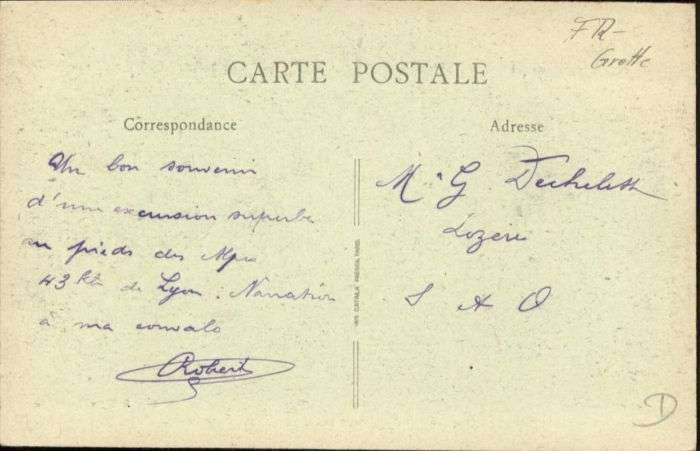 FR-
Grotte
CARTE POSTALE
Correspondance
Adresse
Un bon souvenir
d'une excursion superbe
au pieds des Alpes
43 km de Lyon. Narration
à ma convalo
Robert
M. G.
Lozère
S A O
D